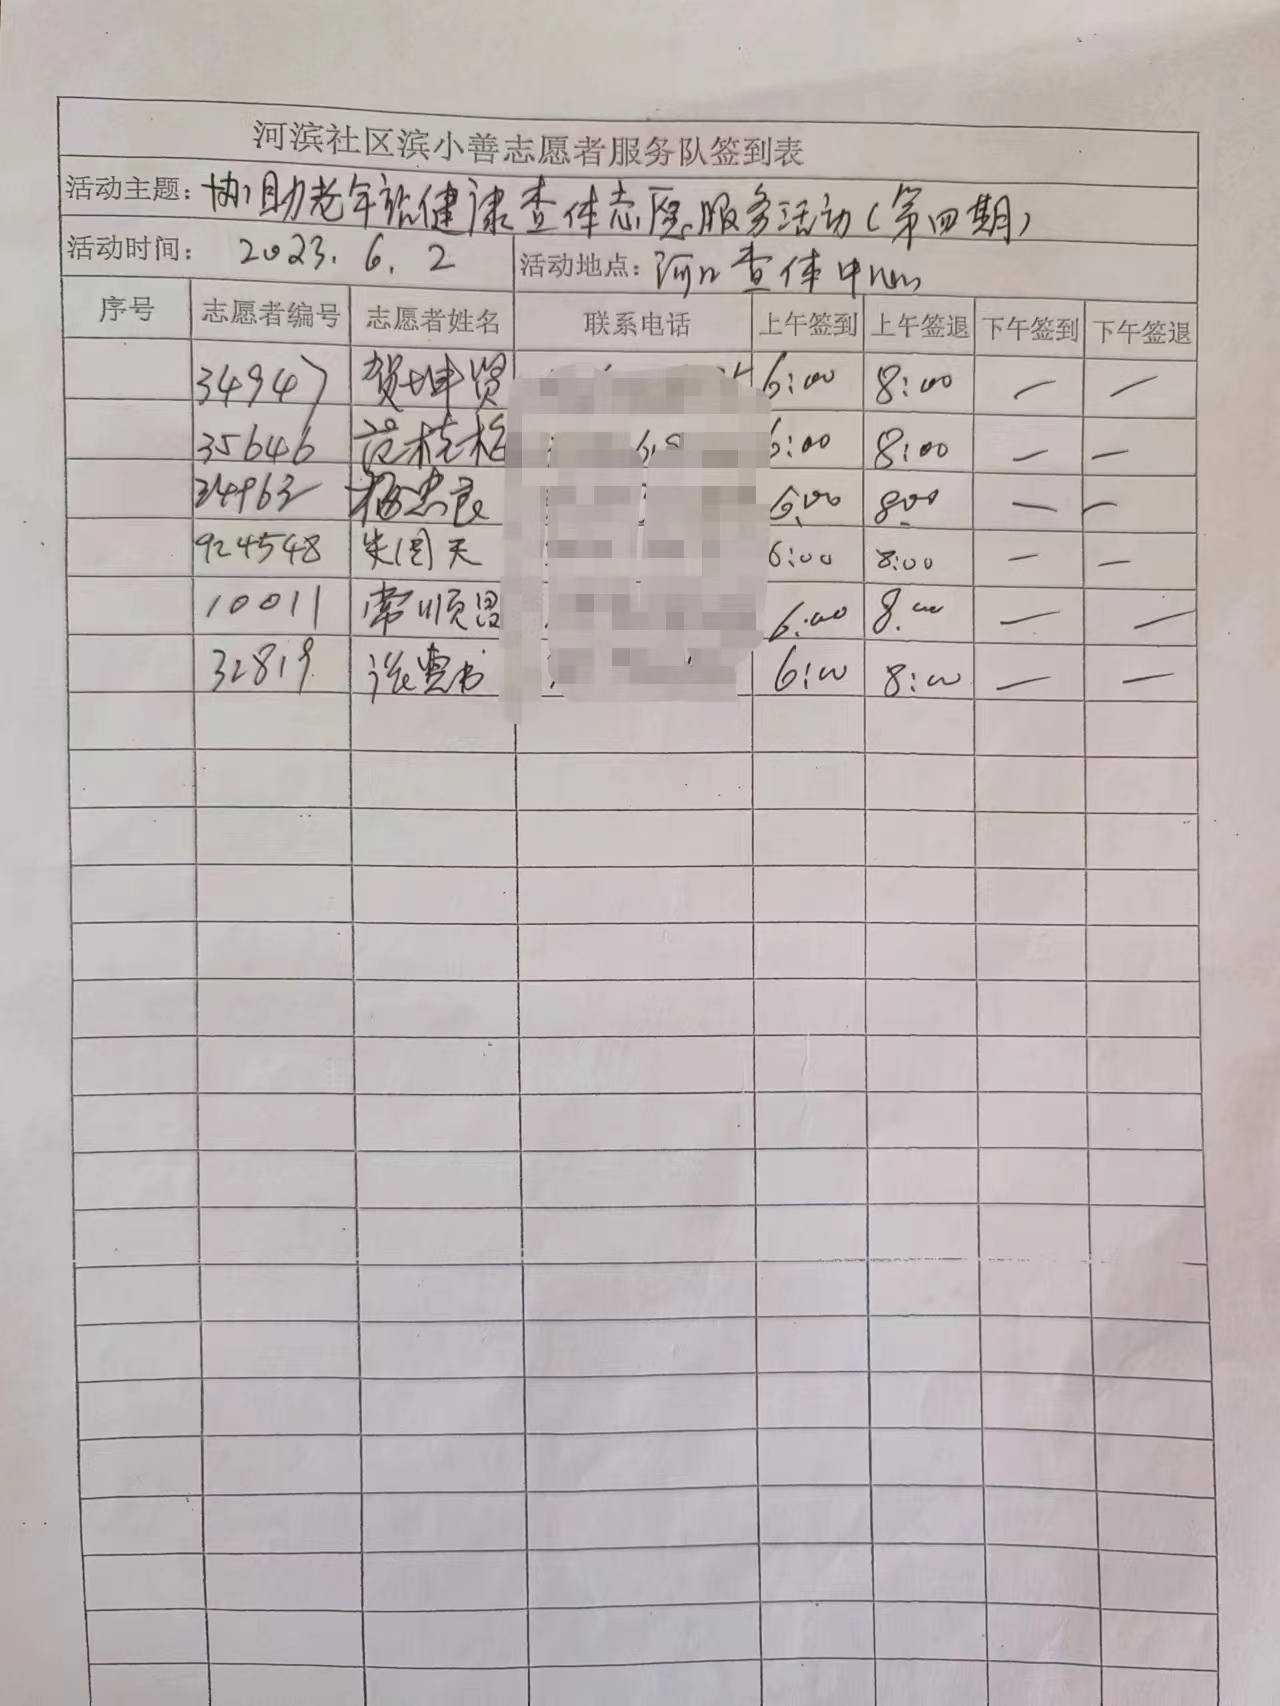 河滨社区滨小善志愿者服务队签到表
活动主题：协助老年站健康查体志愿服务活动（第四期）
活动时间： 2023.6.2 活动地点：河口查体中心
序号 志愿者编号 志愿者姓名 联系电话 上午签到 上午签退 下午签到 下午签退
34947 贺坤贤 6:00 8:00 — —
35646 范桂梅 6:00 8:00 — —
杨忠良 6:00 8:00 — —
924548 朱国天 6:00 8:00 — —
10011 常顺昌 6:00 8:00 — —
32819 6:00 8:00 — —